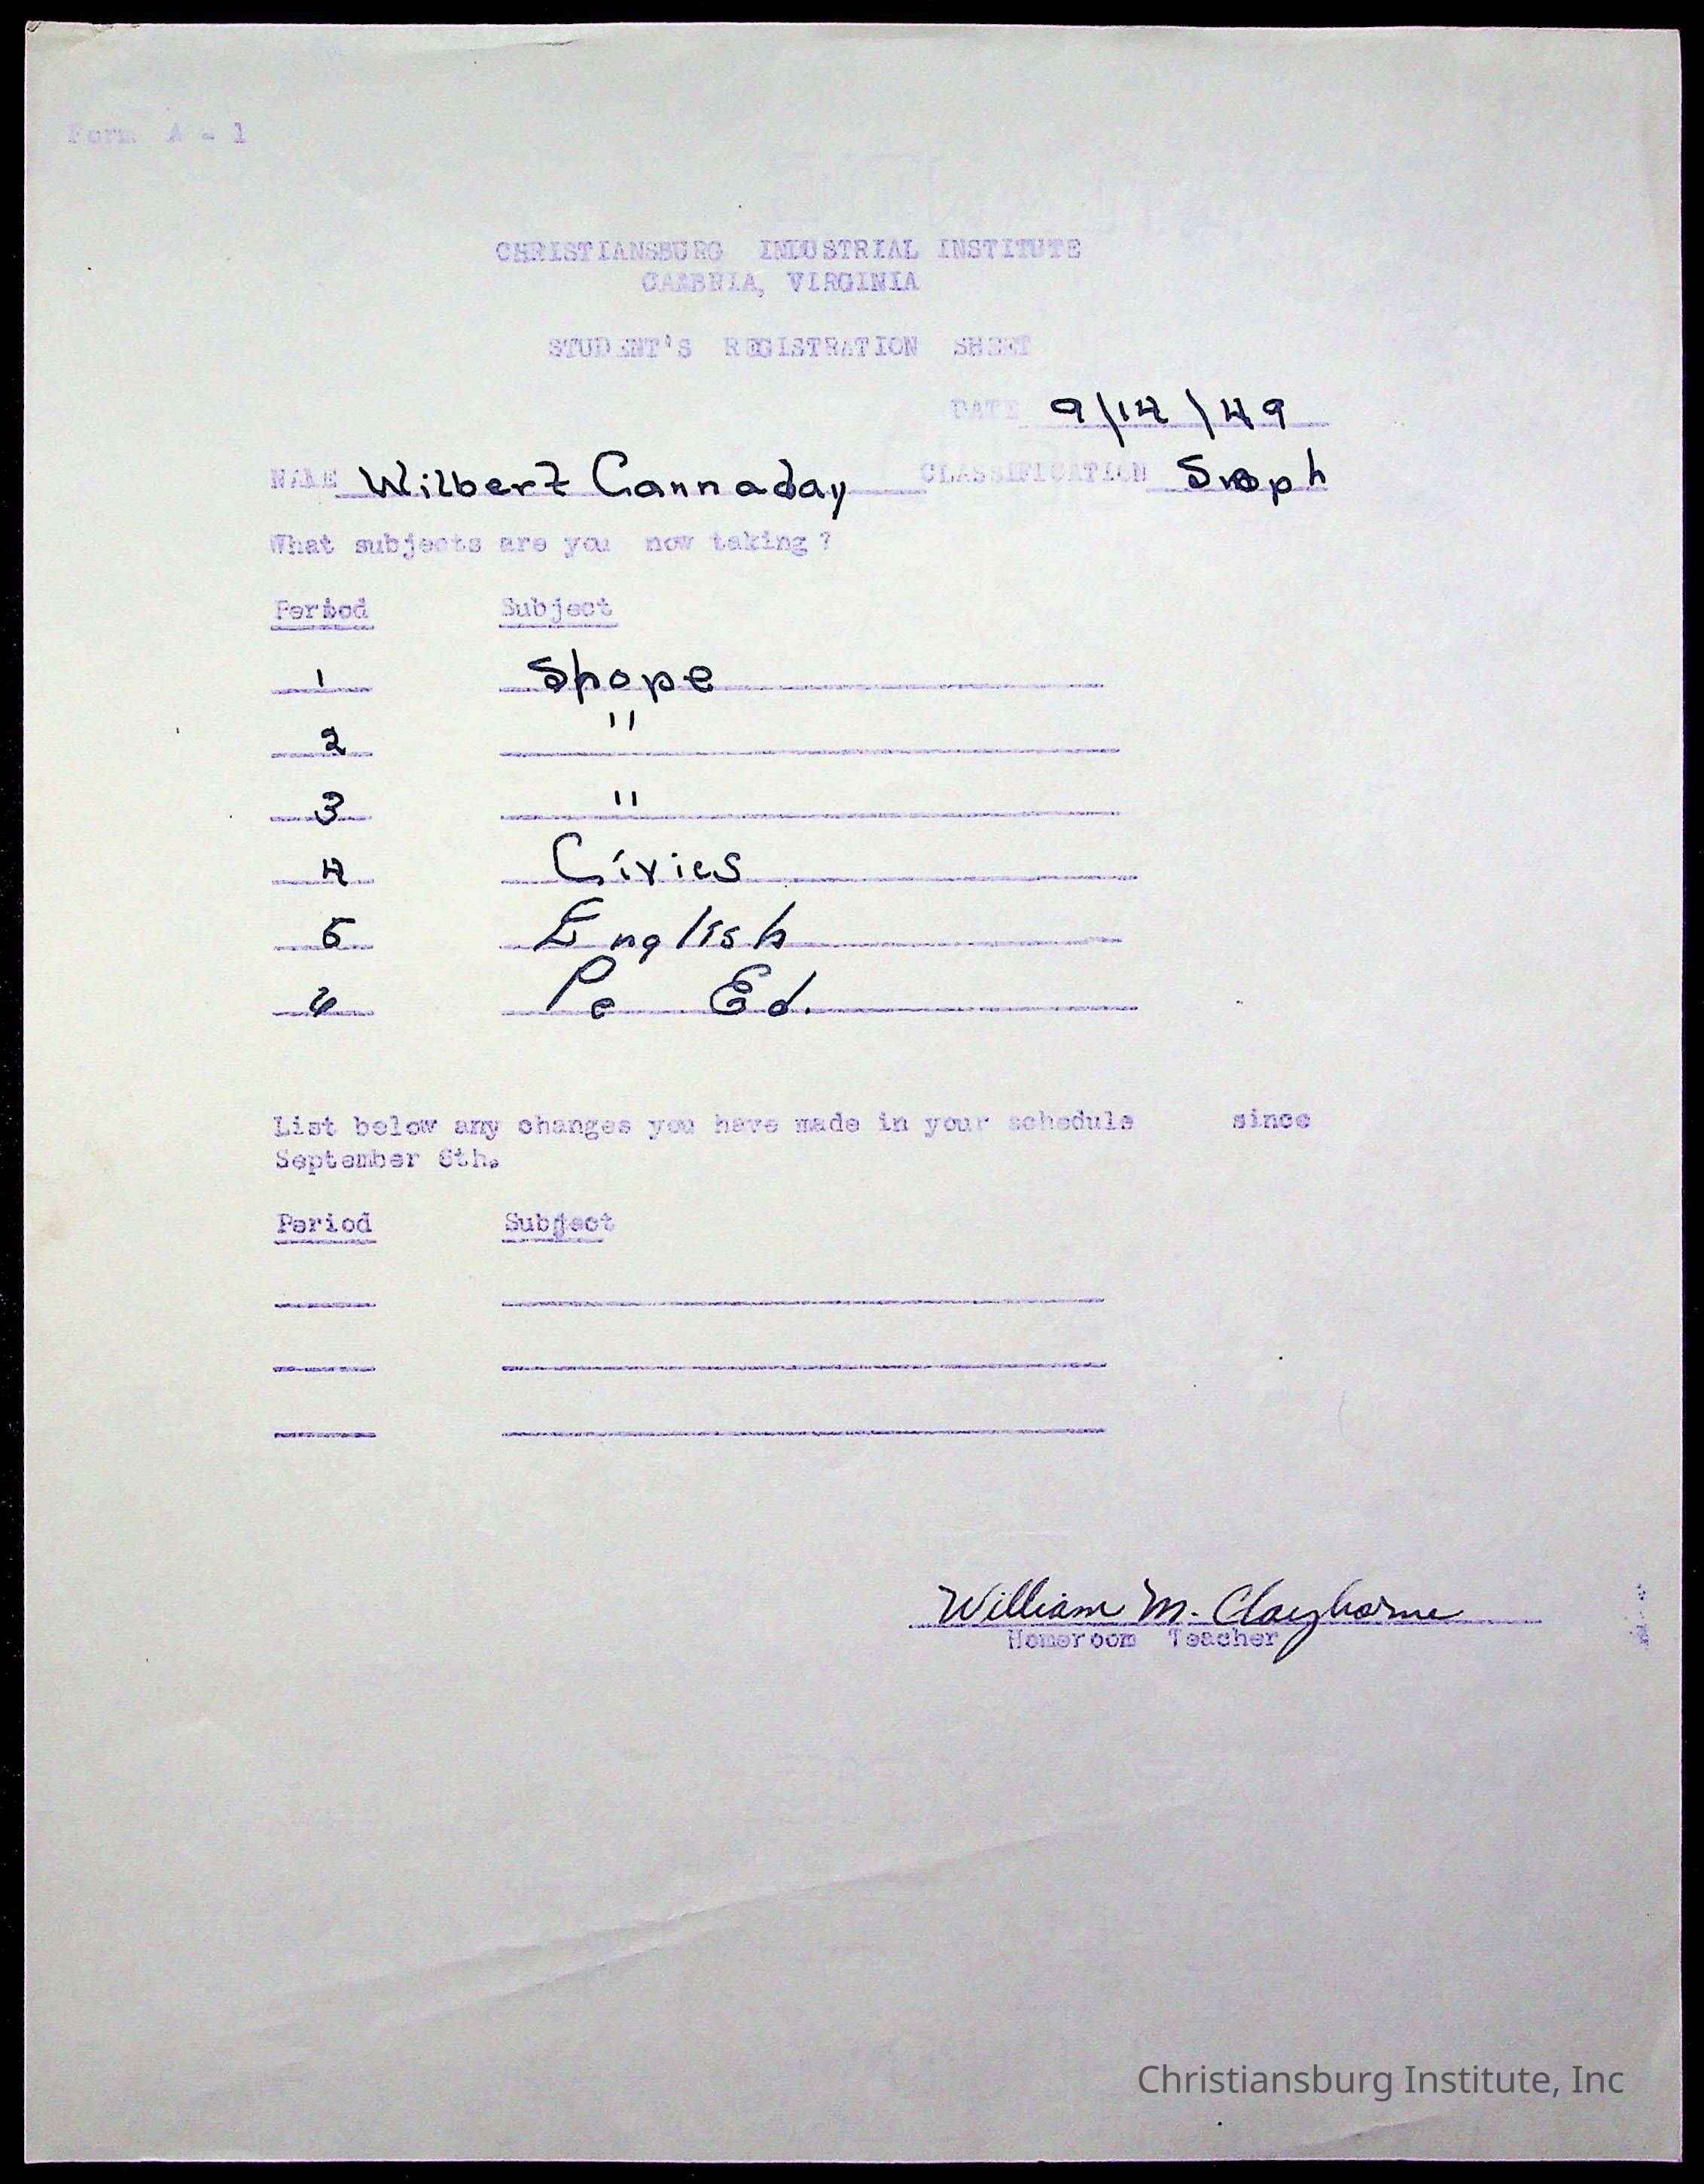 Form A - 1
CHRISTIANSBURG INDUSTRIAL INSTITUTE
CAMBRIA, VIRGINIA
STUDENT'S REGISTRATION SHEET
DATE 9/14/49
NAME Wilbert Cannaday CLASSIFICATION Soph
What subjects are you now taking?
Period Subject
1 Shope
2 "
3 "
4 Civics
5 English
6 Pe Ed.
List below any changes you have made in your schedule since
September 6th.
Period Subject
William M. Clayborne
Homeroom Teacher
Christiansburg Institute, Inc